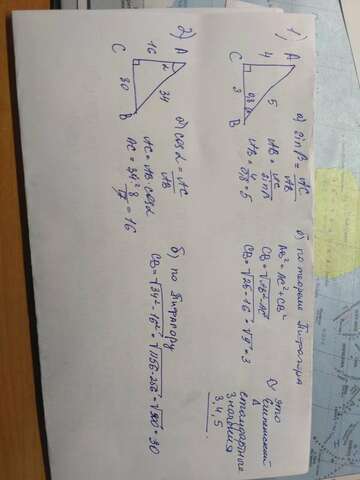 1)
A
4
C
5
3
0,8
B
а) sin β = AC/AB
AB = AC/sin β
AB = 4/0,8 = 5
б) по теореме Пифагора
AB² = AC² + CB²
CB = √AB² - AC²
CB = √25 - 16 = √9 = 3
это
Египетский
Δ
стандартные
Значения
3, 4, 5
2)
A
16
α
C
34
30
B
а) cos α = AC/AB
AC = AB · cos α
AC = 34 · 8/17 = 16
б) по Пифагору
CB = √34² - 16² = √1156 - 256 = √900 = 30